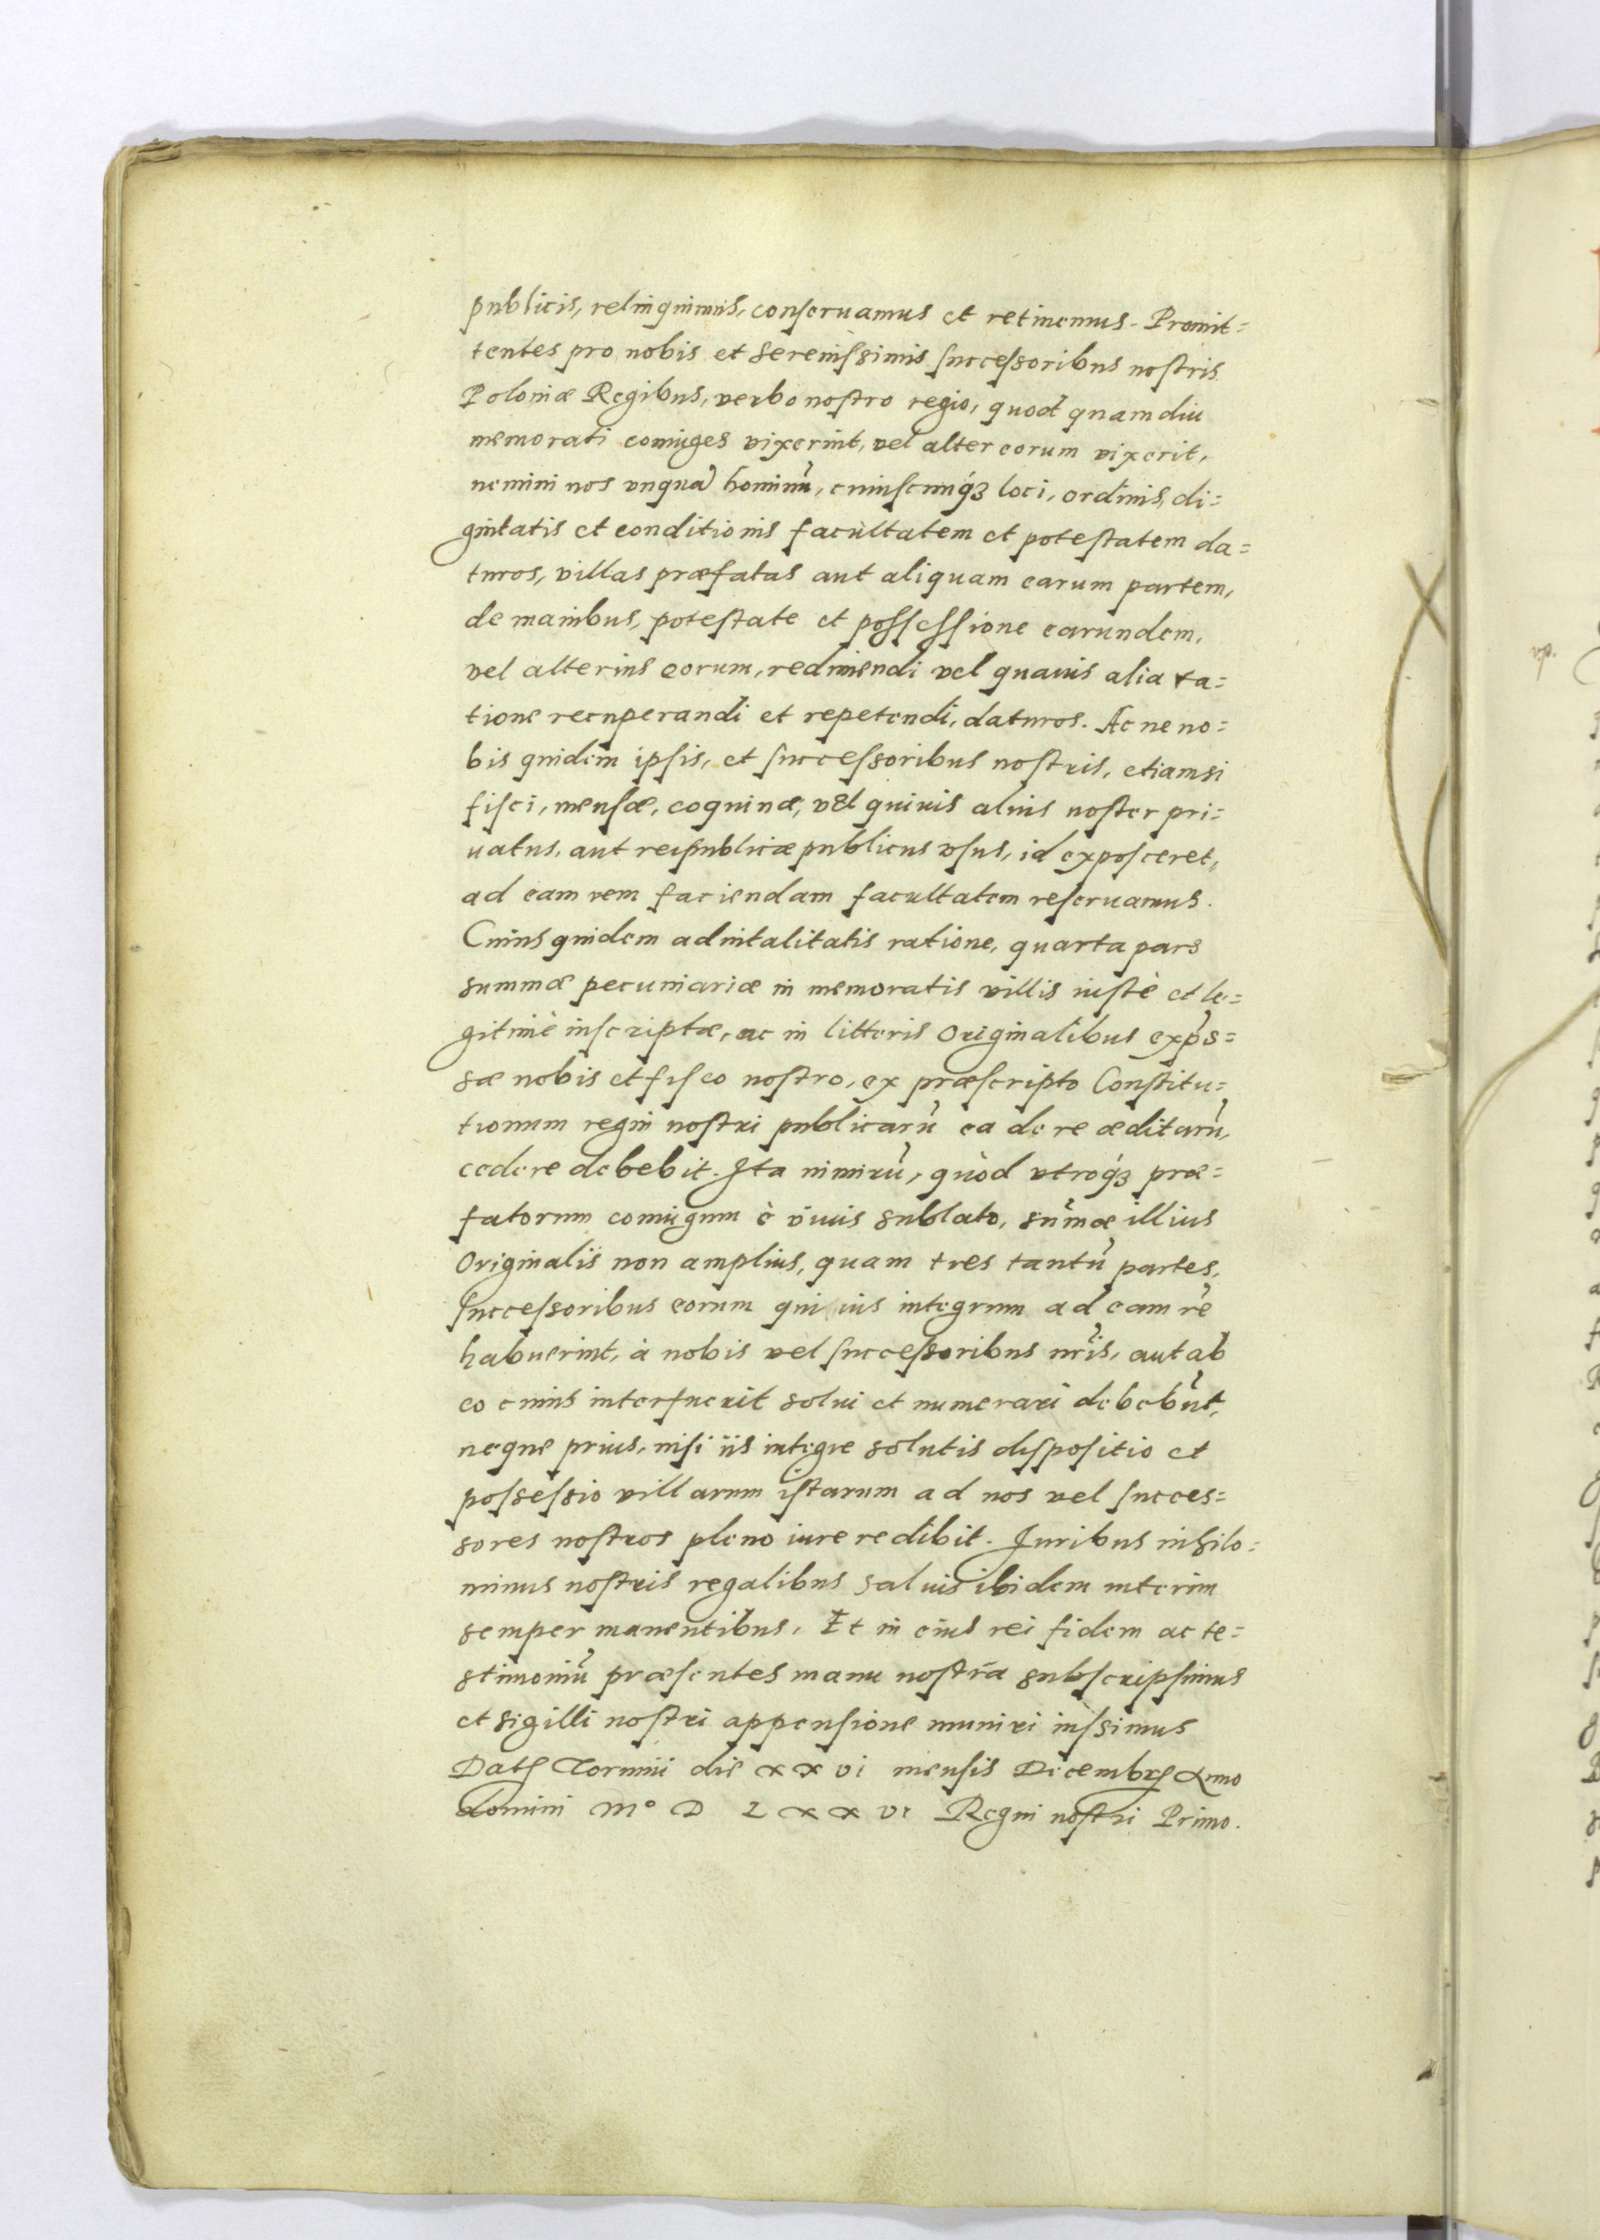 publicis, relinquimus, conseruamus et retinemus. Promit=
tentes pro nobis et serenissimis successoribus nostris
Poloniæ Regibus, verbo nostro regio, quod quam diu
memorati coniuges vixerint, vel alter eorum vixerit,
nemini nos vnquā hominū, cuiuscunq́ꝫ loci, ordinis, di=
gnitatis et conditionis facultatem et potestatem da=
turos, villas præfatas aut aliquam earum partem,
de manibus, potestate et possessione earundem,
vel alterius eorum, redimendi vel quauis alia ra=
tione recuperandi et repetendi, daturos. Ac ne no=
bis quidem ipsis, et successoribus nostris, etiamsi
fisci, mensæ, coquinæ, vel quiuis alius noster pri=
uatus, aut reipublicæ publicus vsus, id exposceret,
ad eam rem faciendam facultatem reseruamus.
Cuius quidem aduitalitatis ratione, quarta pars
summæ pecuniariæ in memoratis villis iustè et le=
gitimè inscriptæ, ac in litteris Originalibus exp̄s=
sæ nobis et fisco nostro, ex præscripto Constitu=
tionum regni nostri publicarū ea de re æditarū,
cedere debebit. Ita nimirū, quòd vtroq́ꝫ præ=
fatorum coniugum è viuis sublato, sūmæ illius
Originalis non amplius, quam tres tantū partes,
successoribus eorum qui ius integrum ad eam rē
habuerint, à nobis vel successoribus nr̄is, aut ab
eo cuius interfuerit solui et numerari debebūt,
neque prius, nisi iis integre solutis dispositio et
possessio villarum istarum ad nos vel succes=
sores nostros pleno iure redibit. Iuribus nihilo=
minus nostris regalibus saluis ibidem interim
semper manentibus, Et in eius rei fidem ac te=
stimoniū præsentes manu nostra subscripsimus
et sigilli nostri appensione muniri iussimus
Datꝭ Torunii die xxvi mensis Decembrꝭ Anno
Domini M° D LXXVI Regni nostri Primo.